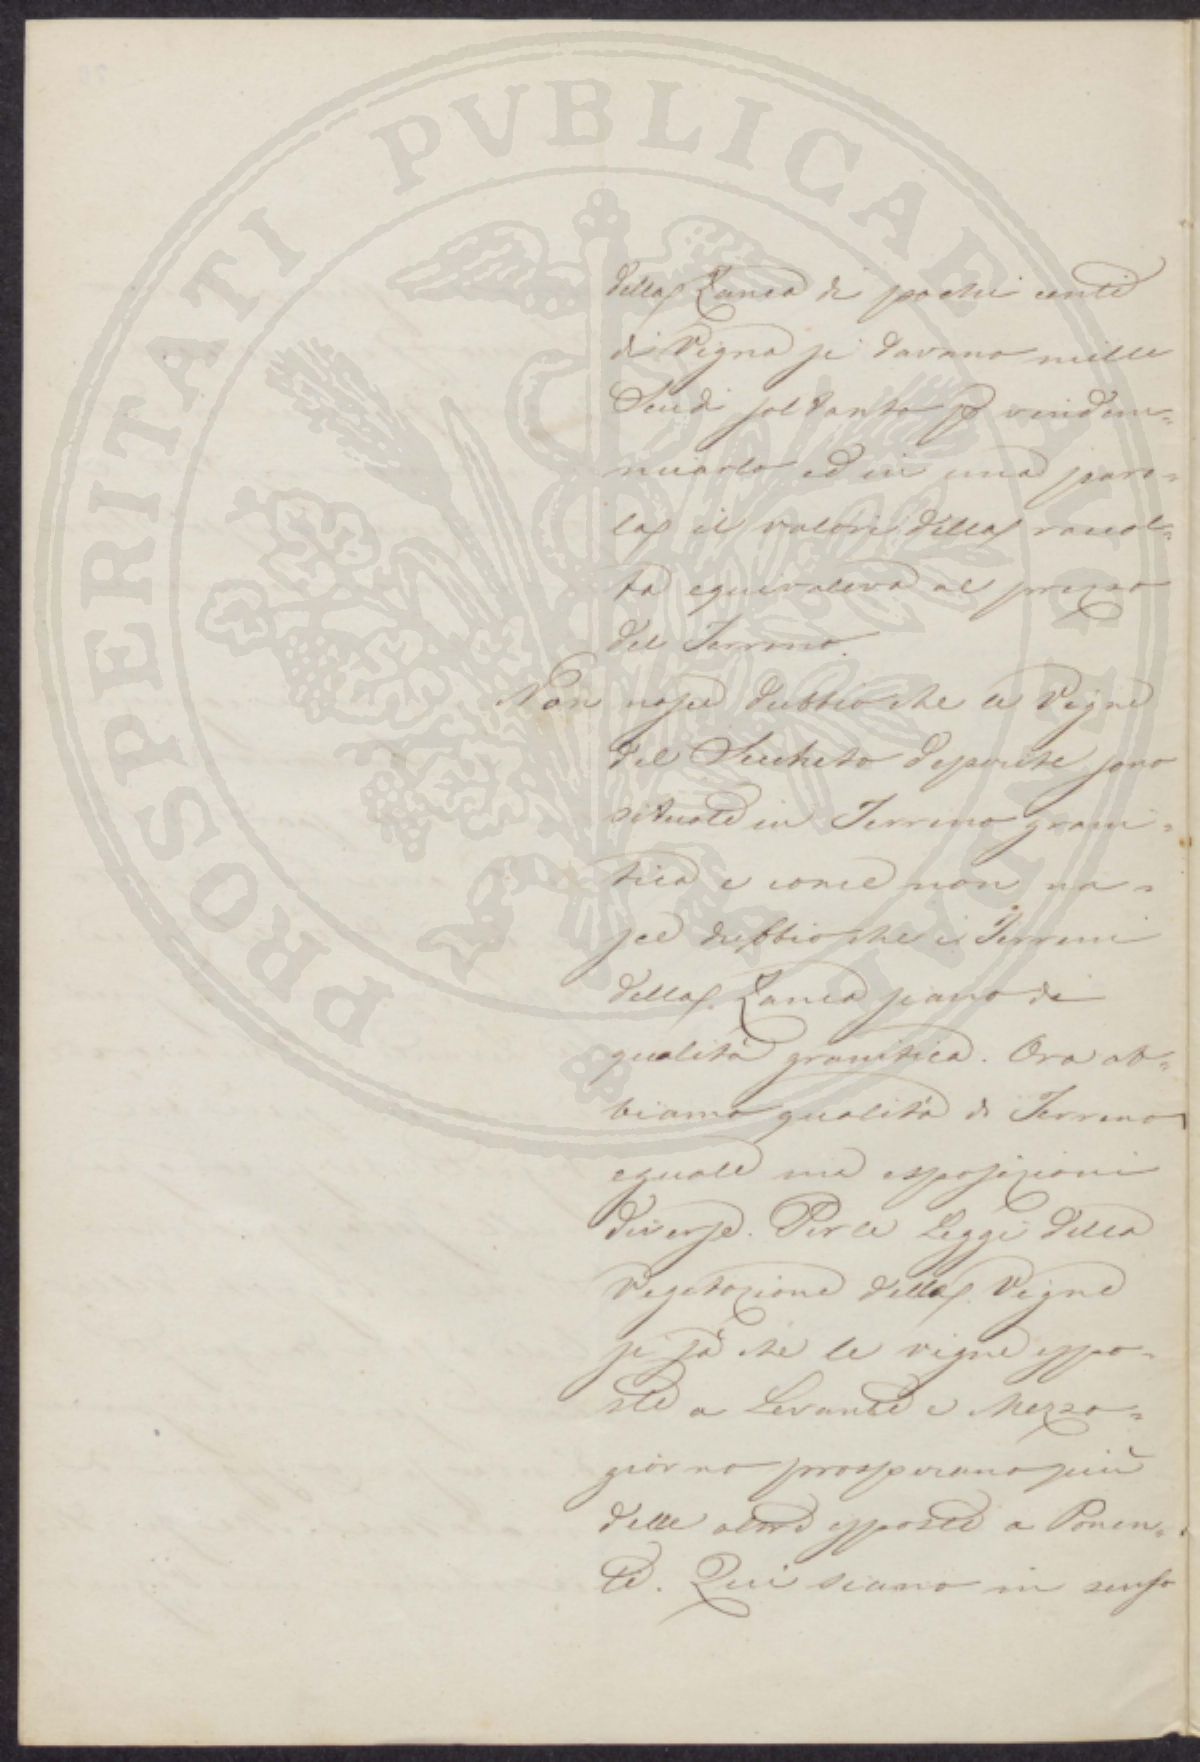 PROSPERITATI PVBLICAE AVGENDAE
della Zanca di pochi centi
di Vigna si davano mille
Scudi soltanto p vendem=
miarlo ed in una paro=
la il valore della raccol=
ta equivaleva al prezzo
del Terreno.
Non nasce dubbio che le Vigne
del Seccheto deperite sono
situate in Terreno grani=
tico e come non na=
sce dubbio che i Terreni
della Zanca siano di
qualità granitica. Ora ab=
biamo qualità di Terreno
eguale ma esposizioni
diverse. Per le Leggi della
Vegetazione della Vigne
si sà che le vigne espo=
ste a Levante e Mezzo=
giorno prosperano più
delle altre esposte a Ponen=
te. Qui siamo in senso